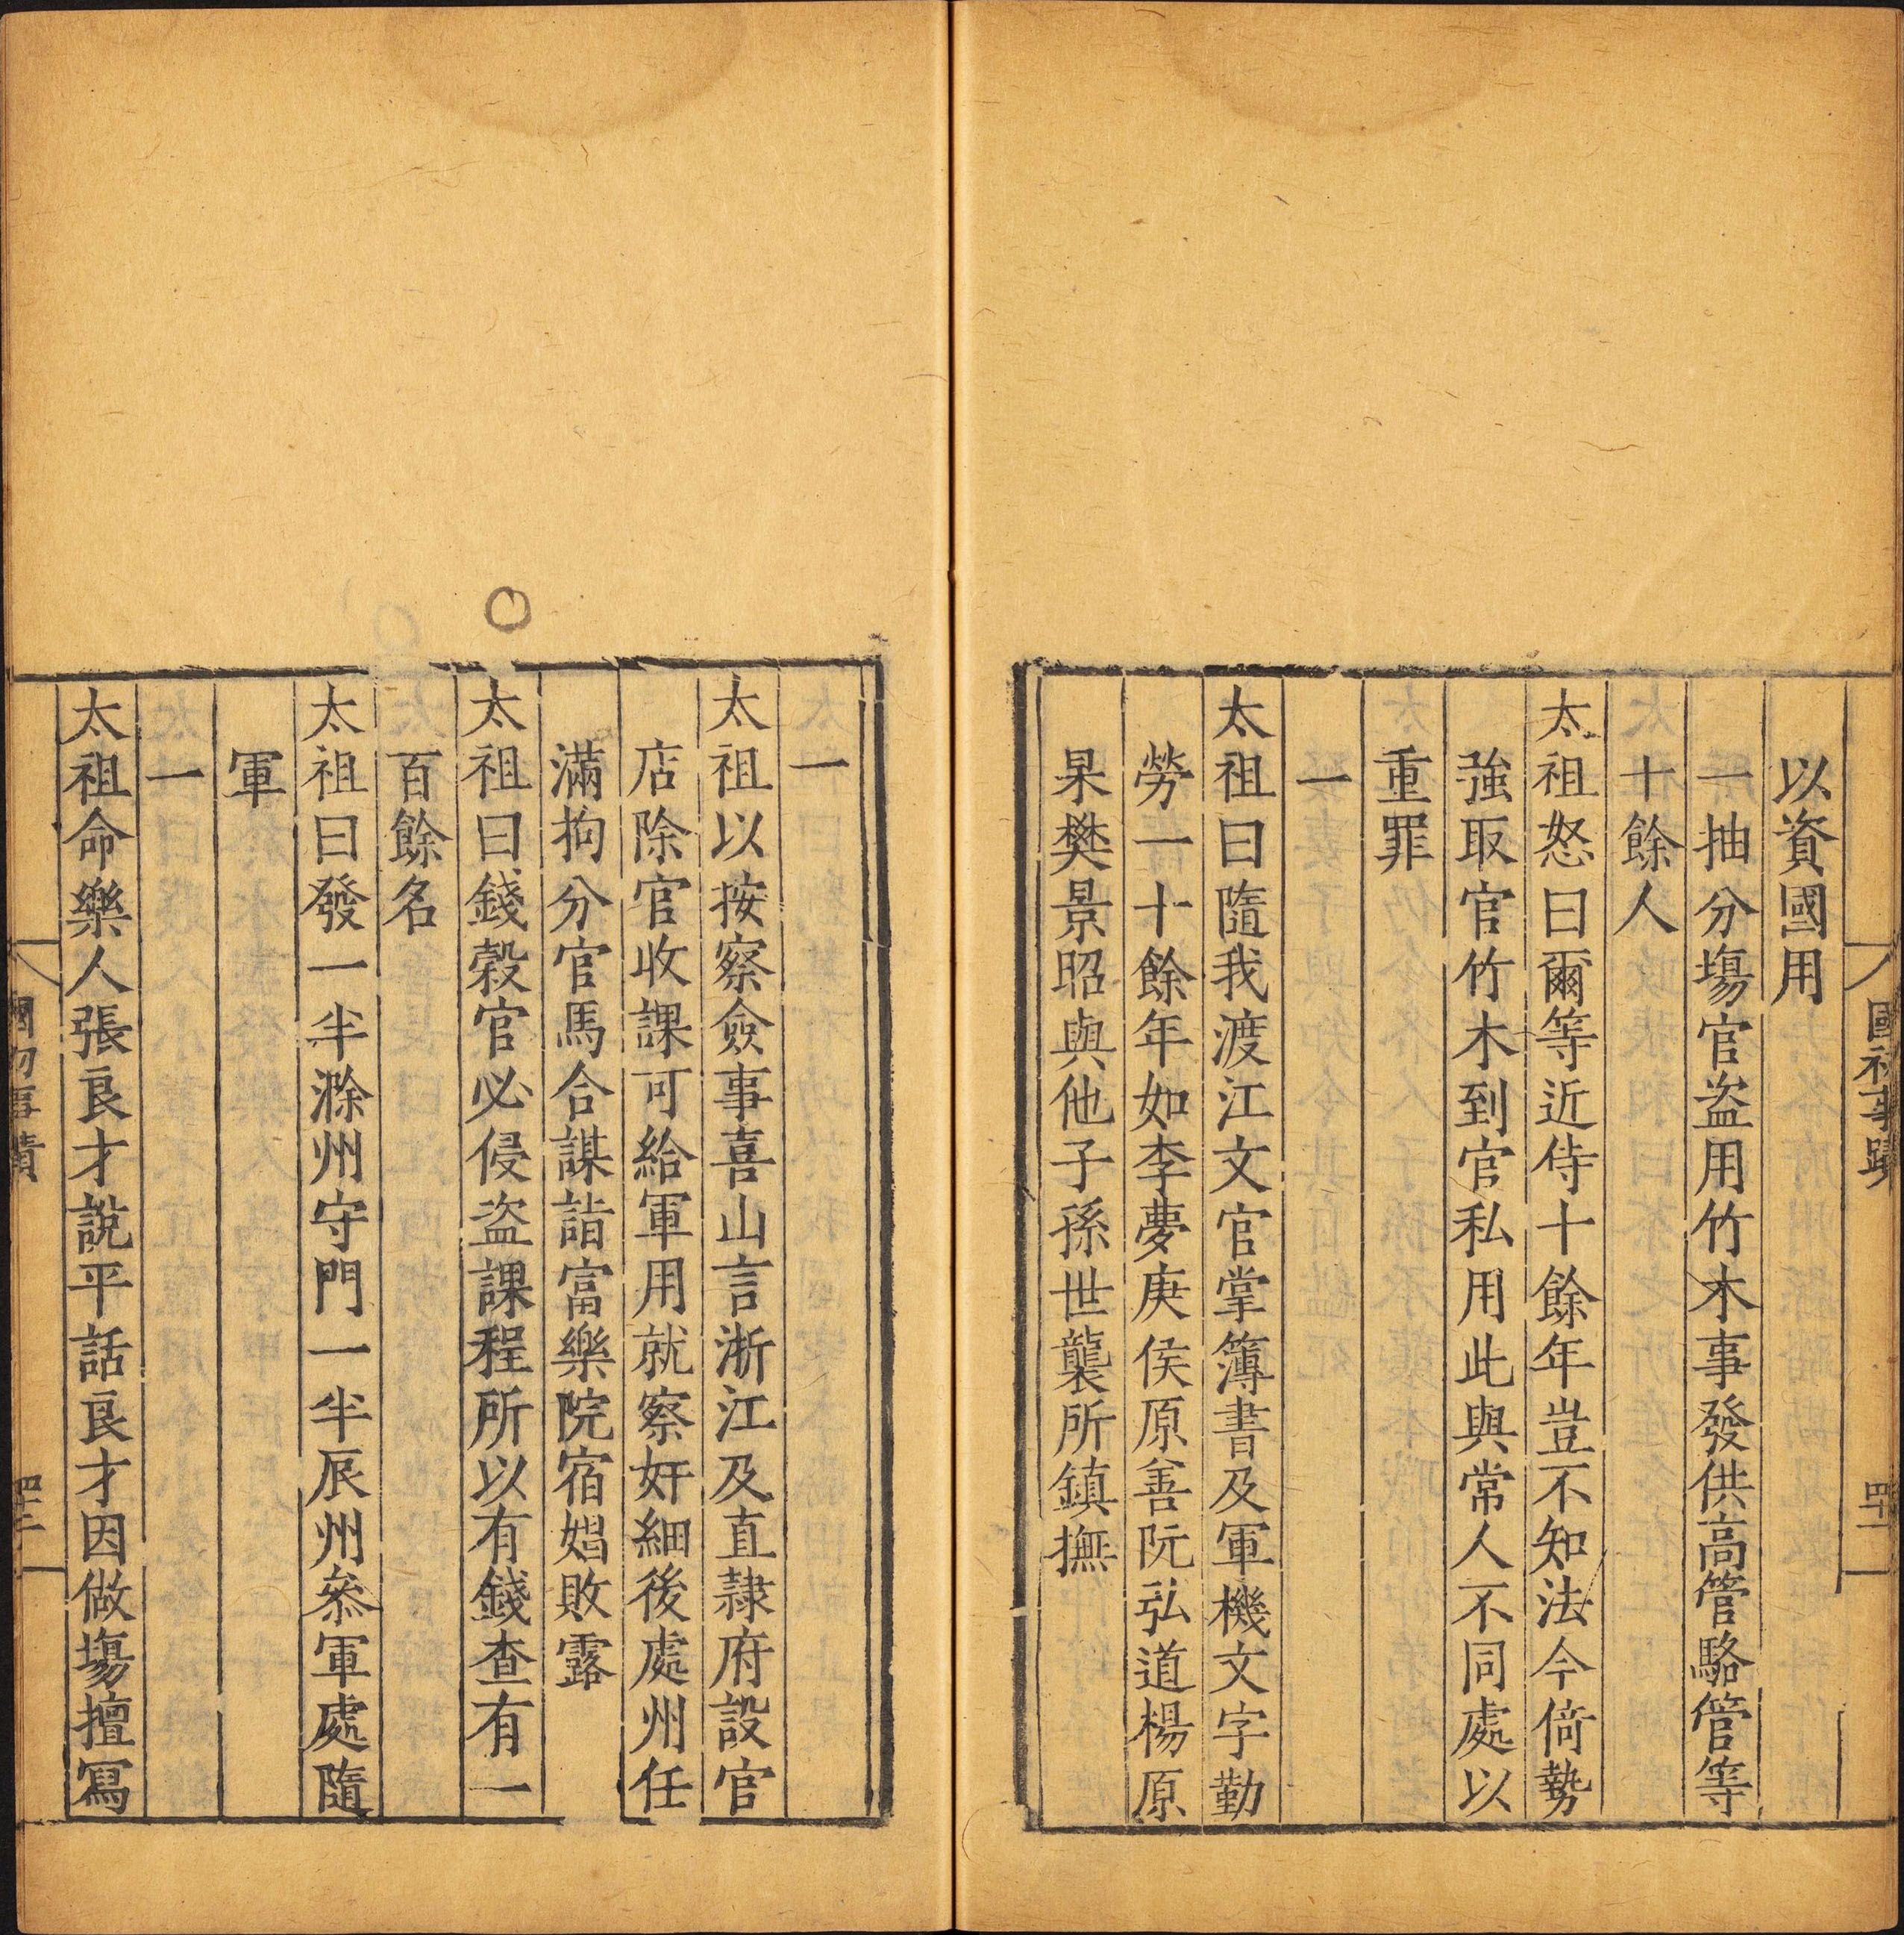 國初事蹟
四十一
以資國用
一抽分塲官盗用竹木事發供高管駱管等
十餘人
太祖怒曰爾等近侍十餘年豈不知法今倚勢
強取官竹木到官私用此與常人不同處以
重罪
一
太祖曰隨我渡江文官掌簿書及軍機文字勤
勞一十餘年如李夢庚侯原善阮弘道楊原
杲樊景昭與他子孫世襲所鎮撫
一
太祖以按察僉事喜山言浙江及直隷府設官
店除官收課可給軍用就察奸細後處州任
滿拘分官馬合謀詣富樂院宿娼敗露
太祖曰錢榖官必侵盗課程所以有錢查有一
百餘名
太祖曰發一半滁州守門一半辰州叅軍處隨
軍
一
太祖命樂人張良才說平話良才因做塲擅冩
國初事蹟
四十二